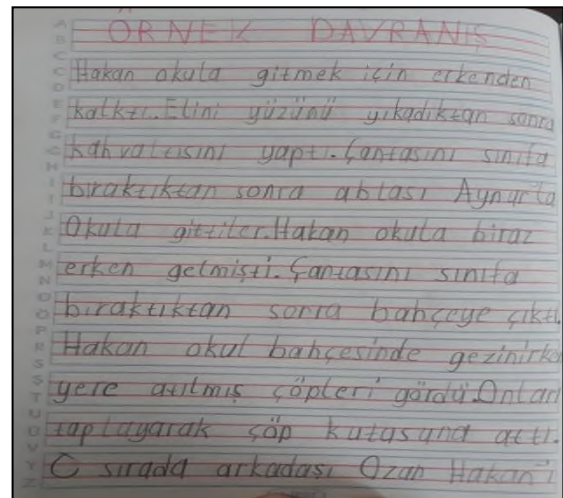 ÖRNEK DAVRANIŞ
Hakan okula gitmek için erkenden
kalktı. Elini yüzünü yıkadıktan sonra
kahvaltısını yaptı. Çantasını sınıfa
bıraktıktan sonra ablası Aynurla
Okula gittiler. Hakan okula biraz
erken gelmişti. Çantasını sınıfa
bıraktıktan sonra bahçeye çıktı.
Hakan okul bahçesinde gezinirke
yere atılmış çöpleri gördü. Onları
toplayarak çöp kutusuna attı.
O sırada arkadaşı Ozan Hakan'ı